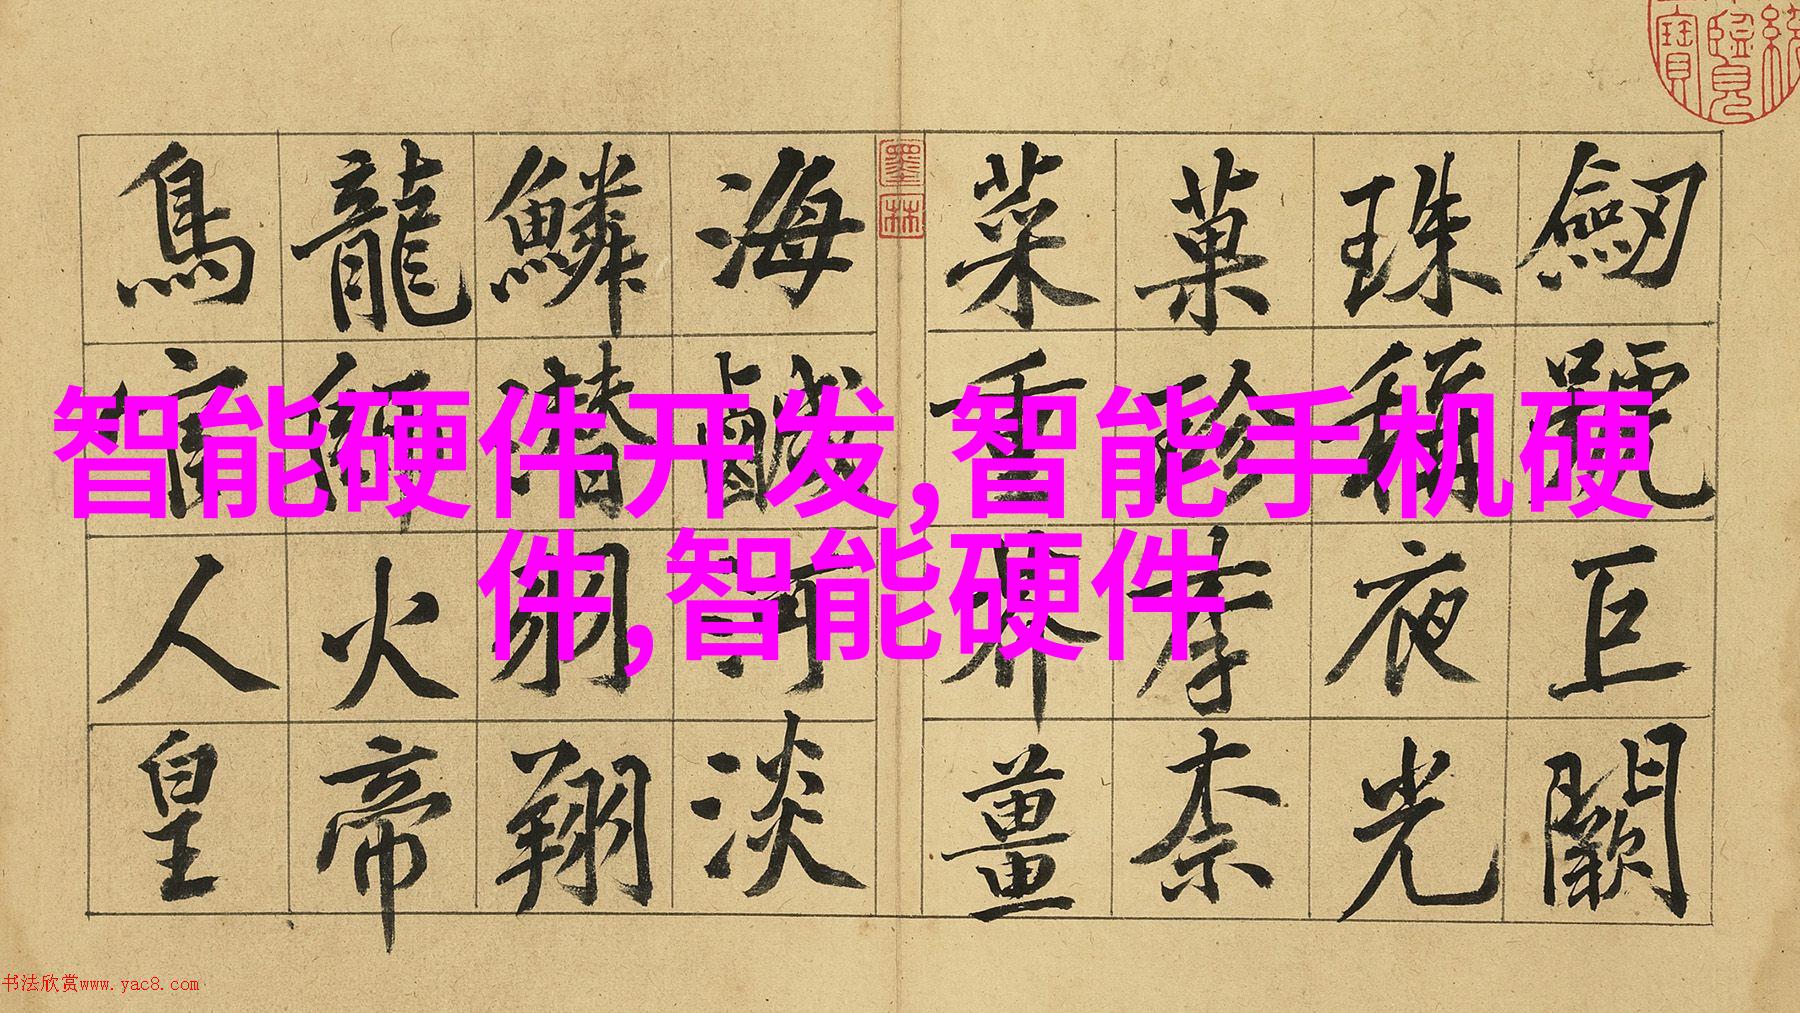 智能硬件开发,智能手机硬
件,智能硬件
劒號巨闕
珠稱夜光
菓珍李柰
菜重芥薑
墨林
海鹹河淡
鱗潛羽翔
龍師火帝
鳥官人皇
书法欣赏www.yac8.com